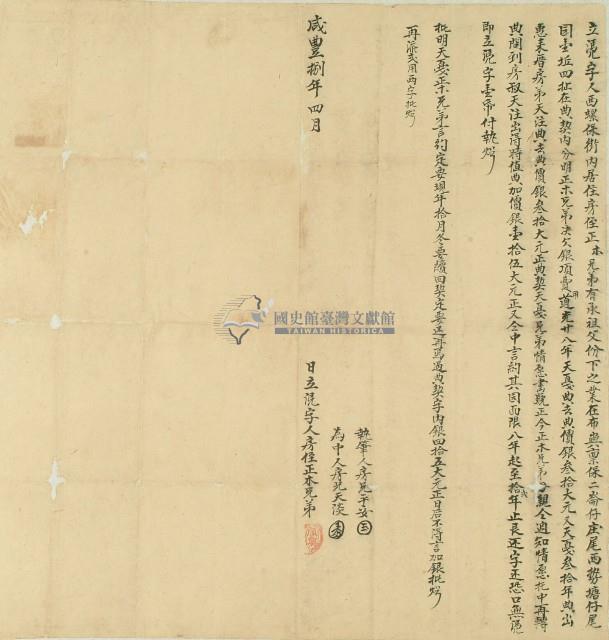 立憑字人西螺保街內居住房侄正木兄弟有承祖父份下之業在布嶼稟保二崙仔庄尾西勢塘仔尾
田壹坵四址在典契內分明正木兄弟決欠銀項費用道光廿八年天憂典去典價銀叁拾大元又天憂叁拾年典出
惠來厝房弟天注典去典價銀叁拾大元正典契天憂兄弟情愿書號正今正木兄弟親仝過知情愿托中再轉
典開到房叔天注出得時值典加價銀壹拾伍大元正又仝中言約其因面限八年起至拾年止長还字正恐口無憑
即立憑字壹帋付執炤
批明天憂正木兄弟言約定要現年拾月冬要贖回契定要还再為過典契字內銀四拾五大元正日后不得言加銀批炤
再添式用兩字批炤
執筆人房兄平安
為中人房兄天淡
咸豐捌年四月 日立憑字人房侄正木兄弟
國史館臺灣文獻館
TAIWAN HISTORICA